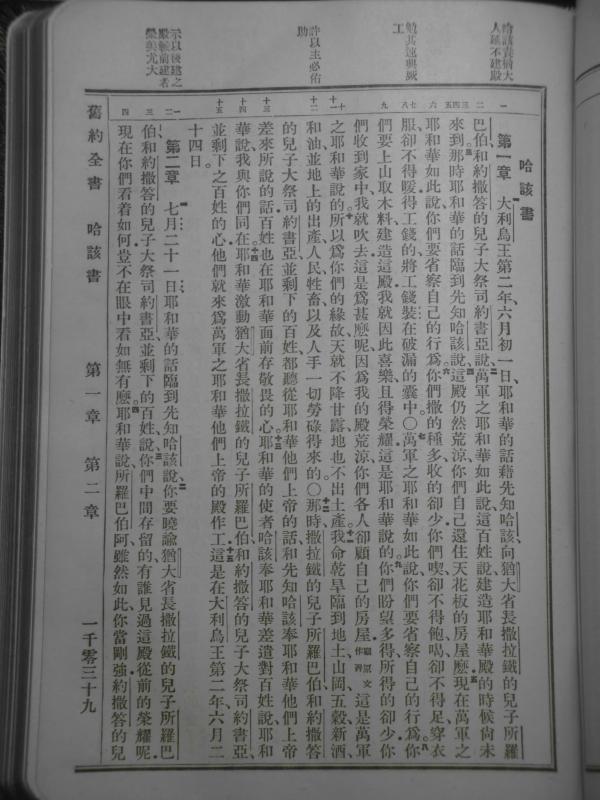 許以主必佑助
示以後建之殿較前建者榮美尤大
哈該書
第一章 大利烏王第二年六月初一日耶和華的話藉先知哈該向猶大省長撒拉鐵的兒子所羅
巴伯和約撒答的兒子大祭司約書亞說萬軍之耶和華如此說這百姓說建造耶和華殿的時候尚未
來到那時耶和華的話臨到先知哈該說這殿仍然荒涼你們自己還住天花板的房屋麽現在萬軍之
耶和華如此說你們要省察自己的行爲你們撒的種多收的卻少你們喫卻不得飽喝卻不得足穿衣
服卻不得暖得工錢的將工錢裝在破漏的囊中○萬軍之耶和華如此說你們要省察自己的行爲你
們要上山取木料建造這殿我就因此喜樂且得榮耀這是耶和華說的你們盼望多得所得的卻少你
們收到家中我就吹去這是爲甚麽呢因爲我的殿荒涼你們各人卻顧自己的房屋顧原文作奔這是萬軍
之耶和華說的所以爲你們的緣故天就不降甘露地也不出土產我命乾旱臨到地土山岡五穀新酒
和油並地上的出產人民牲畜以及人手一切勞碌得來的○那時撒拉鐵的兒子所羅巴伯和約撒答
的兒子大祭司約書亞並剩下的百姓都聽從耶和華他們上帝的話和先知哈該奉耶和華他們上帝
差來所說的話百姓也在耶和華面前存敬畏的心耶和華的使者哈該奉耶和華差遣對百姓說耶和
華說我與你們同在耶和華激動猶大省長撒拉鐵的兒子所羅巴伯和約撒答的兒子大祭司約書亞
並剩下之百姓的心他們就來爲萬軍之耶和華他們上帝的殿作工這是在大利烏王第二年六月二
十四日
第二章 七月二十一日耶和華的話臨到先知哈該說你要曉諭猶大省長撒拉鐵的兒子所羅巴
伯和約撒答的兒子大祭司約書亞並剩下的百姓說你們中間存留的有誰見過這殿從前的榮耀呢
現在你們看着如何豈不在眼中看如無有麽耶和華說所羅巴伯阿雖然如此你當剛強約撒答的兒
舊約全書 哈該書 第一章 第二章 一千零三十九